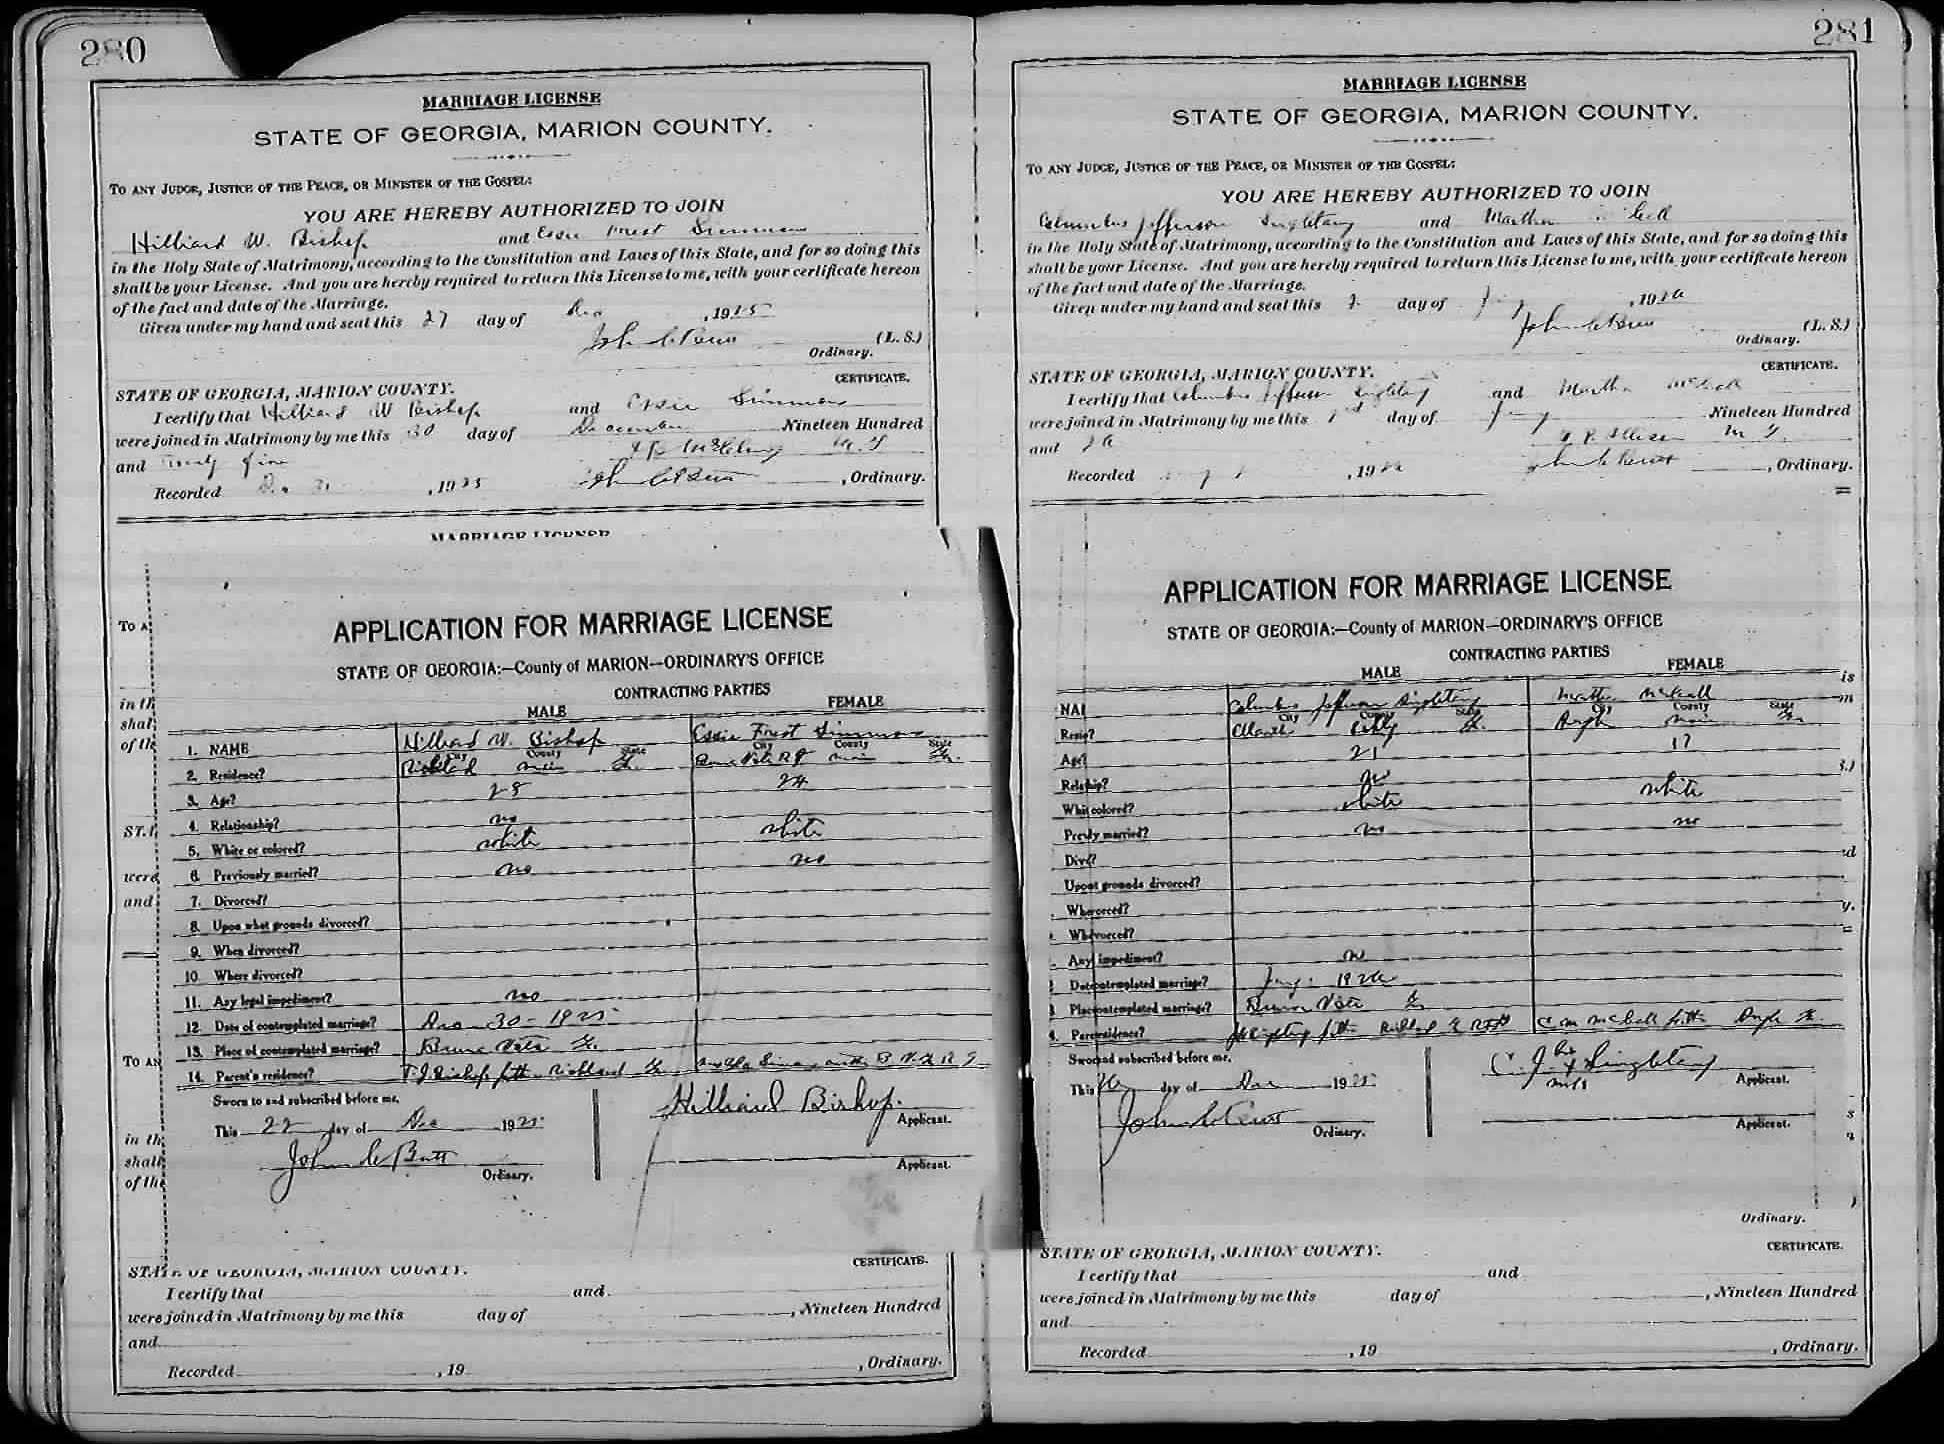 280
MARRIAGE LICENSE
STATE OF GEORGIA, MARION COUNTY.
TO ANY JUDGE, JUSTICE OF THE PEACE, OR MINISTER OF THE GOSPEL:
YOU ARE HEREBY AUTHORIZED TO JOIN
Hilliard W. Bishop and Essie Forest Simmons
in the Holy State of Matrimony, according to the Constitution and Laws of this State, and for so doing this
shall be your License. And you are hereby required to return this License to me, with your certificate hereon
of the fact and date of the Marriage.
Given under my hand and seal this 27 day of Dec, 1925
John C Butt (L. S.)
Ordinary.
CERTIFICATE.
STATE OF GEORGIA, MARION COUNTY.
I certify that Hilliard W Bishop and Essie Simmons
were joined in Matrimony by me this 30 day of December Nineteen Hundred
and Twenty five
Recorded Dec 31, 1925 John C Butt, Ordinary.
MARRIAGE LICENSE
To A
in th
shal
of th
ST.
were
and
To AN
in th
shall
of the
APPLICATION FOR MARRIAGE LICENSE
STATE OF GEORGIA:—County of MARION—ORDINARY'S OFFICE
CONTRACTING PARTIES
MALE FEMALE
1. NAME Hilliard W. Bishop Essie Forest Simmons
City County State City County State
2. Residence? Richland Marion Ga. Buena Vista Marion Ga.
3. Age? 28 24
4. Relationship? no
5. White or colored? white white
6. Previously married? no no
7. Divorced?
8. Upon what grounds divorced?
9. When divorced?
10. Where divorced?
11. Any legal impediment? no
12. Date of contemplated marriage? Dec 30 - 1925
13. Place of contemplated marriage? Buena Vista Ga.
14. Parent's residence? T J Bishop father Richland Ga
Sworn to and subscribed before me.
This 22 day of Dec 1925 Hilliard Bishop.
Applicant.
John C Butt
Ordinary.
Applicant.
CERTIFICATE.
STATE OF GEORGIA, MARION COUNTY.
I certify that and
were joined in Matrimony by me this day of, Nineteen Hundred
and
Recorded, 19, Ordinary.
281
MARRIAGE LICENSE
STATE OF GEORGIA, MARION COUNTY.
TO ANY JUDGE, JUSTICE OF THE PEACE, OR MINISTER OF THE GOSPEL:
YOU ARE HEREBY AUTHORIZED TO JOIN
Columbus Jefferson Singletary and Martha
in the Holy State of Matrimony, according to the Constitution and Laws of this State, and for so doing this
shall be your License. And you are hereby required to return this License to me, with your certificate hereon
of the fact and date of the Marriage.
Given under my hand and seal this day of, 19
John C Butt (L. S.)
Ordinary.
CERTIFICATE.
STATE OF GEORGIA, MARION COUNTY.
I certify that Columbus Jefferson Singletary and Martha McCall
were joined in Matrimony by me this 1st day of Nineteen Hundred
and
Recorded, 19 John C Butt, Ordinary.
APPLICATION FOR MARRIAGE LICENSE
STATE OF GEORGIA:—County of MARION—ORDINARY'S OFFICE
CONTRACTING PARTIES
MALE FEMALE
NA Columbus Jefferson Singletary Martha McCall
City County State City County State
Resie? Ga. Marion Ga.
Age? 21 17
Relaship? no
Whit colored? white white
Prevly married? no no
Divd?
Upon at grounds divorced?
Wheorced?
Whevorced?
Any impediment? no
Date contemplated marriage? 1926
Place contemplated marriage? Buena Vista Ga
4. Paresidence? Singletary father Richland Ga C M McCall father Ga.
Sworn and subscribed before me.
This day of Dec 1925 C. J. his x Singletary
mark
Applicant.
John C Butt
Ordinary.
Applicant.
Ordinary.
CERTIFICATE.
STATE OF GEORGIA, MARION COUNTY.
I certify that and
were joined in Matrimony by me this day of, Nineteen Hundred
and
Recorded, 19, Ordinary.